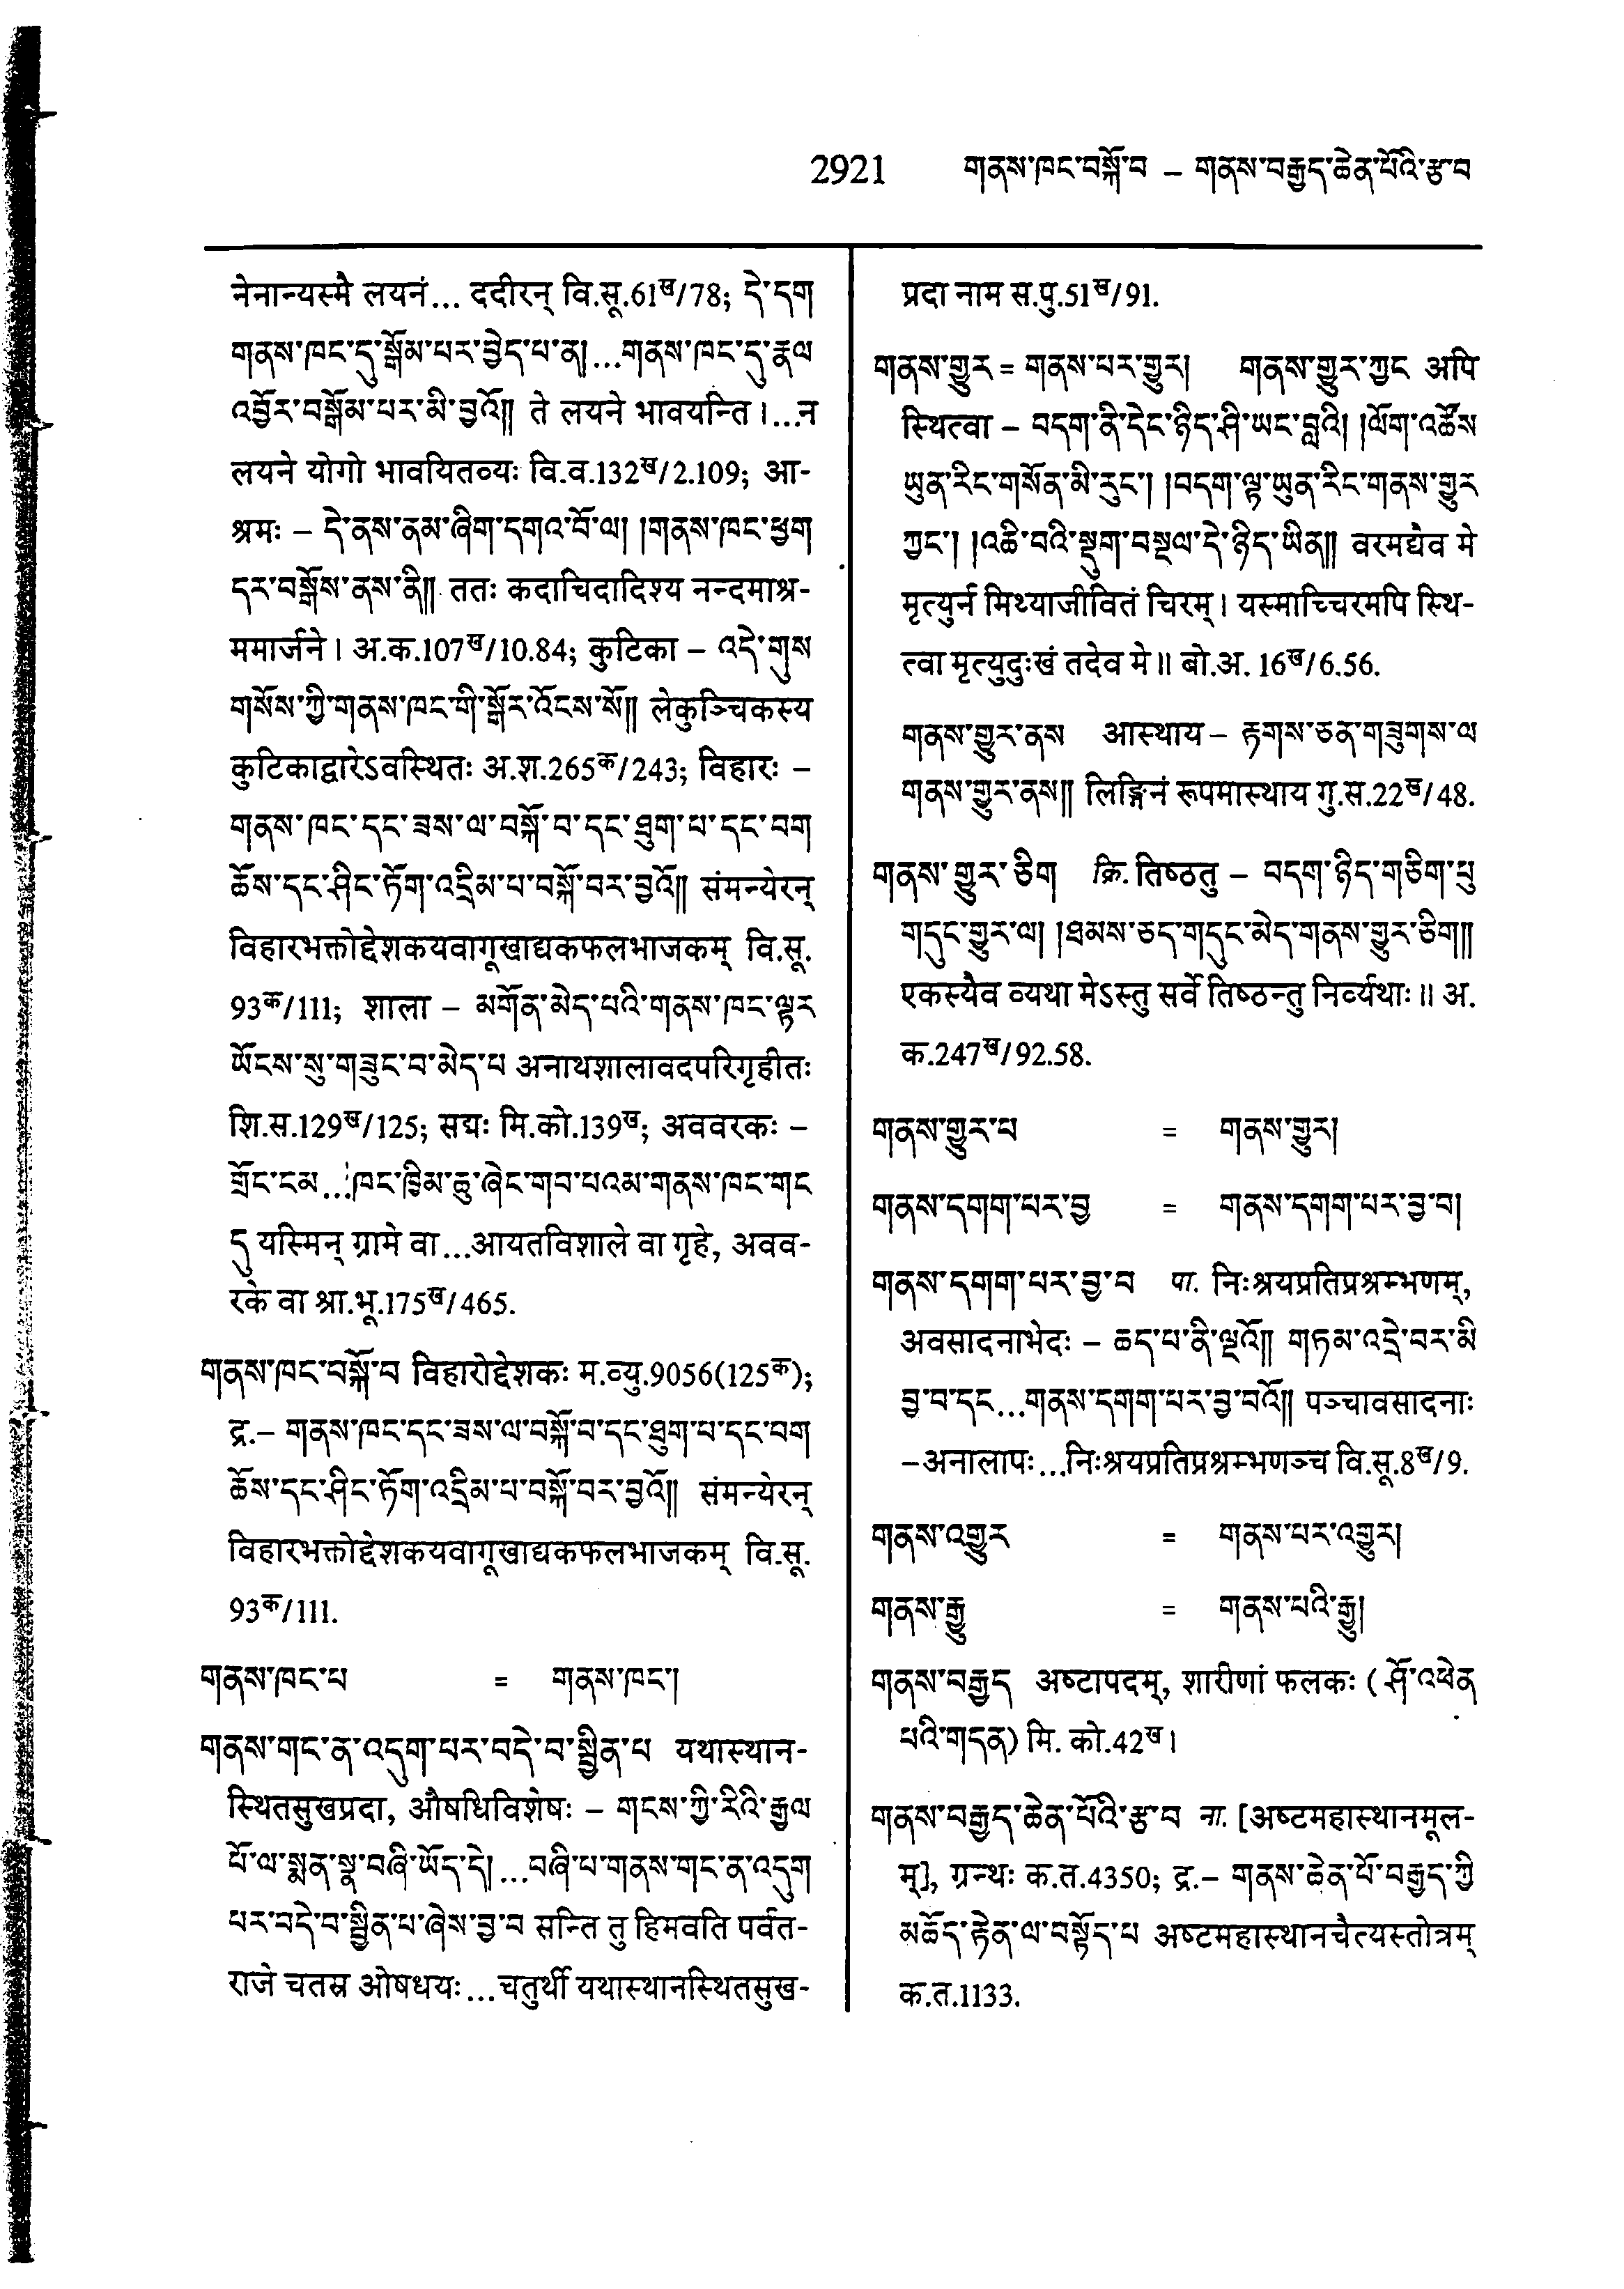 2921 གནས་ཁང་བསྐོ་བ – གནས་བརྒྱད་ཆེན་པོའི་རྩ་བ
नेनान्यस्मै लयनं... ददीरन् वि.सू.61ख/78; དེ་དག
གནས་ཁང་དུ་སྒོམ་པར་བྱེད་པ་ན།...གནས་ཁང་དུ་རྣལ
འབྱོར་བསྒོམ་པར་མི་བྱའོ།། ते लयने भावयन्ति।...न
लयने योगो भावयितव्यः वि.व.132ख/2.109; आ-
श्रमः – དེ་ནས་ནམ་ཞིག་དགའ་བོ་ལ། །གནས་ཁང་ཕྱག
དར་བསྒོས་ནས་ནི།། ततः कदाचिदादिश्य नन्दमाश्र-
ममार्जने। अ.क.107ख/10.84; कुटिका – འདི་གུས
གསོས་ཀྱི་གནས་ཁང་གི་སྒོར་འོངས་སོ།། लेकुञ्चिकस्य
कुटिकाद्वारेऽवस्थितः अ.श.265क/243; विहारः –
གནས་ཁང་དང་ཟས་ལ་བསྐོ་བ་དང་ཐུག་པ་དང་བག
ཆོས་དང་ཤིང་ཏོག་འདྲིམ་པ་བསྐོ་བར་བྱའོ།། संमन्येरन्
विहारभक्तोद्देशकयवागूखाद्यकफलभाजकम् वि.सू.
93क/111; शाला – མགོན་མེད་པའི་གནས་ཁང་ལྟར
ཡོངས་སུ་གཟུང་བ་མེད་པ अनाथशालावदपरिगृहीतः
शि.स.129ख/125; सद्मः मि.को.139ख; अववरकः –
གྲོང་ངམ...ཁང་ཁྱིམ་ཆུ་ཞེང་གབ་པའམ་གནས་ཁང་གང
དུ यस्मिन् ग्रामे वा...आयतविशाले वा गृहे, अवव-
रके वा श्रा.भू.175ख/465.
གནས་ཁང་བསྐོ་བ विहारोद्देशकः म.व्यु.9056(125क);
द्र.– གནས་ཁང་དང་ཟས་ལ་བསྐོ་བ་དང་ཐུག་པ་དང་བག
ཆོས་དང་ཤིང་ཏོག་འདྲིམ་པ་བསྐོ་བར་བྱའོ།། संमन्येरन्
विहारभक्तोद्देशकयवागूखाद्यकफलभाजकम् वि.सू.
93क/111.
གནས་ཁང་པ = གནས་ཁང་།
གནས་གང་ན་འདུག་པར་བདེ་བ་སྦྱིན་པ यथास्थान-
स्थितसुखप्रदा, औषधिविशेषः – གངས་ཀྱི་རིའི་རྒྱལ
པོ་ལ་སྨན་སྣ་བཞི་ཡོད་དེ།...བཞི་པ་གནས་གང་ན་འདུག
པར་བདེ་བ་སྦྱིན་པ་ཞེས་བྱ་བ सन्ति तु हिमवति पर्वत-
राजे चतस्र ओषधयः...चतुर्थी यथास्थानस्थितसुख-
प्रदा नाम स.पु.51ख/91.
གནས་གྱུར = གནས་པར་གྱུར། གནས་གྱུར་ཀྱང अपि
स्थित्वा – བདག་ནི་དེང་ཉིད་ཤི་ཡང་བླའི། །ལོག་འཚོས
ཡུན་རིང་གསོན་མི་རུང་། །བདག་ལྟ་ཡུན་རིང་གནས་གྱུར
ཀྱང་། །འཆི་བའི་སྡུག་བསྔལ་དེ་ཉིད་ཡིན།། वरमद्यैव मे
मृत्युर्न मिथ्याजीवितं चिरम्। यस्माच्चिरमपि स्थि-
त्वा मृत्युदुःखं तदेव मे॥ बो.अ. 16ख/6.56.
གནས་གྱུར་ནས आस्थाय – རྟགས་ཅན་གཟུགས་ལ
གནས་གྱུར་ནས།། लिङ्गिनं रूपमास्थाय गु.स.22ख/48.
གནས་གྱུར་ཅིག क्रि. तिष्ठतु – བདག་ཉིད་གཅིག་པུ
གདུང་གྱུར་ལ། །ཐམས་ཅད་གདུང་མེད་གནས་གྱུར་ཅིག།།
एकस्यैव व्यथा मेऽस्तु सर्वे तिष्ठन्तु निर्व्यथाः॥ अ.
क.247ख/92.58.
གནས་གྱུར་པ = གནས་གྱུར།
གནས་དགག་པར་བྱ = གནས་དགག་པར་བྱ་བ།
གནས་དགག་པར་བྱ་བ पा. निःश्रयप्रतिप्रश्रम्भणम्,
अवसादनाभेदः – ཆད་པ་ནི་ལྔའོ།། གཏམ་འདྲེ་བར་མི
བྱ་བ་དང...གནས་དགག་པར་བྱ་བའོ།། पञ्चावसादनाः
–अनालापः...निःश्रयप्रतिप्रश्रम्भणञ्च वि.सू.8ख/9.
གནས་འགྱུར = གནས་པར་འགྱུར།
གནས་རྒྱུ = གནས་པའི་རྒྱུ།
གནས་བརྒྱད अष्टापदम्, शारीणां फलकः (ཤོ་འཕེན
པའི་གདན) मि. को.42ख।
གནས་བརྒྱད་ཆེན་པོའི་རྩ་བ ना. [अष्टमहास्थानमूल-
म्], ग्रन्थः क.त.4350; द्र.– གནས་ཆེན་པོ་བརྒྱད་ཀྱི
མཆོད་རྟེན་ལ་བསྟོད་པ अष्टमहास्थानचैत्यस्तोत्रम्
क.त.1133.